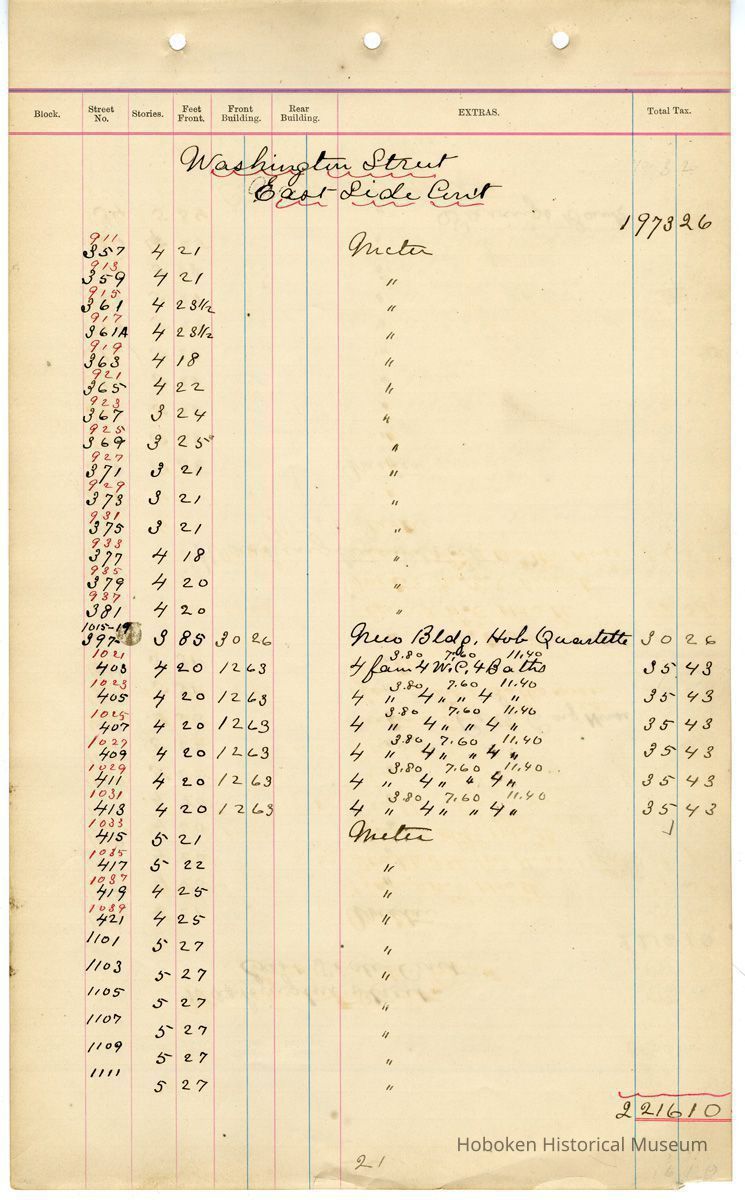 Block. Street No. Stories. Feet Front. Front Building. Rear Building. EXTRAS. Total Tax.
Washington Street
East Side Con't
1973 26
911
357 4 21 Meter
913
359 4 21 "
915
361 4 23 1/2 "
917
361A 4 23 1/2 "
919
363 4 18 "
921
365 4 22 "
923
367 3 24 "
925
369 3 25 "
927
371 3 21 "
929
373 3 21 "
931
375 3 21 "
933
377 4 18 "
935
379 4 20 "
937
381 4 20 "
1015-19
397 3 85 30 26 New Bldg. Hob Quartette 30 26
1021 3.80 7.60 11.40
403 4 20 12 63 4 fam 4 W.C. 4 Baths 35 43
1023 3.80 7.60 11.40
405 4 20 12 63 4 " 4 " " 4 " 35 43
1025 3.80 7.60 11.40
407 4 20 12 63 4 " 4 " " 4 " 35 43
1027 3.80 7.60 11.40
409 4 20 12 63 4 " 4 " " 4 " 35 43
1029 3.80 7.60 11.40
411 4 20 12 63 4 " 4 " " 4 " 35 43
1031 3.80 7.60 11.40
413 4 20 12 63 4 " 4 " " 4 " 35 43
1033
415 5 21 Meter
1035
417 5 22 "
1037
419 4 25 "
1039
421 4 25 "
1101 5 27 "
1103 5 27 "
1105 5 27 "
1107 5 27 "
1109 5 27 "
1111 5 27 "
2216 10
Hoboken Historical Museum
21